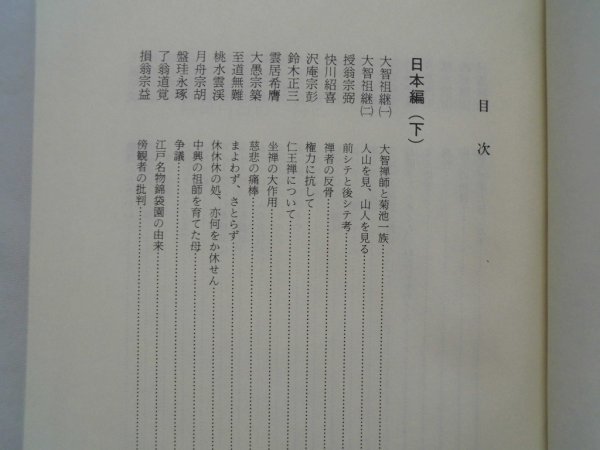 目次
日本編（下）
大智祖継㈠　大智禅師と菊池一族
大智祖継㈡　人山を見、山人を見る
授翁宗弼　前シテと後シテ考
快川紹喜　禅者の反骨
沢庵宗彭　権力に抗して
鈴木正三　仁王禅について
雲居希膺　坐禅の大作用
大愚宗築　慈悲の痛棒
至道無難　まよわず、さとらず
桃水雲渓　休休休の処、亦何をか休せん
月舟宗胡　中興の祖師を育てた母
盤珪永琢　争議
了翁道覚　江戸名物錦袋園の由来
損翁宗益　傍観者の批判